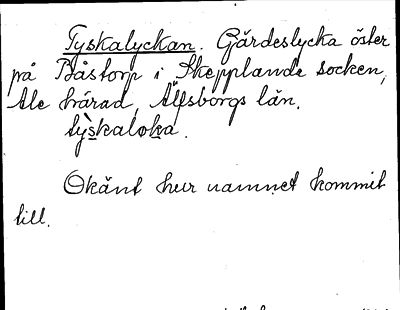 Tyskalyckan. Gärdeslycka öster
på Båstorp i Skepplanda socken,
Ale härad, Älfsborgs län.
tỳskaloka.
Okänt hur namnet kommit
till.